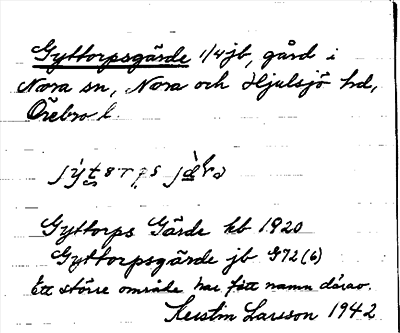 Gyttorpsgärde 1/4 jb, gård i
Nora sn, Nora och Hjulsjö hd,
Örebro l.
Gyttorps Gärde kb 1920
Gyttorpsgärde jb 972 (6)
Ett större område har fått namn därav.
Kerstin Larsson 1942